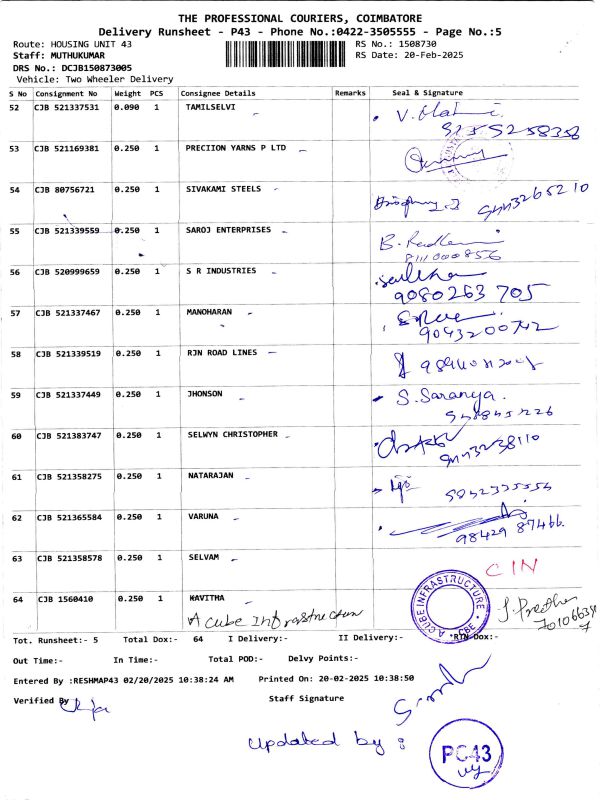 THE PROFESSIONAL COURIERS, COIMBATORE
Delivery Runsheet - P43 - Phone No.:0422-3505555 - Page No.:5
Route: HOUSING UNIT 43 RS No.: 1508730
Staff: MUTHUKUMAR RS Date: 20-Feb-2025
DRS No.: DCJB150873005
Vehicle: Two Wheeler Delivery
S No Consignment No Weight PCS Consignee Details Remarks Seal & Signature
52 CJB 521337531 0.090 1 TAMILSELVI
53 CJB 521169381 0.250 1 PRECIION YARNS P LTD
54 CJB 80756721 0.250 1 SIVAKAMI STEELS
9443265210
55 CJB 521339559 0.250 1 SAROJ ENTERPRISES
56 CJB 520999659 0.250 1 S R INDUSTRIES
9080263 705
57 CJB 521337467 0.250 1 MANOHARAN
9043200742
58 CJB 521339519 0.250 1 RJN ROAD LINES
59 CJB 521337449 0.250 1 JHONSON S. Saranya.
60 CJB 521383747 0.250 1 SELWYN CHRISTOPHER
9443238110
61 CJB 521358275 0.250 1 NATARAJAN
62 CJB 521365584 0.250 1 VARUNA
98429 87466.
63 CJB 521358578 0.250 1 SELVAM CIN
64 CJB 1560410 0.250 1 KAVITHA A CUBE INFRASTRUCTURE CBE
A Cube Infrastructure
Tot. Runsheet:- 5 Total Dox:- 64 I Delivery:- II Delivery:- *RTN Dox:-
Out Time:- In Time:- Total POD:- Delvy Points:-
Entered By :RESHMAP43 02/20/2025 10:38:24 AM Printed On: 20-02-2025 10:38:50
Verified By Staff Signature
Updated by : PC43